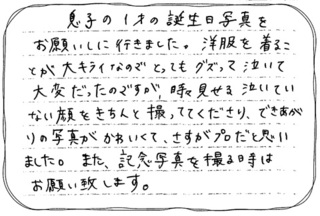 息子の1才の誕生日写真を
お願いしに行きました。洋服を着るこ
とが大キライなのでとってもグズって泣いて
大変だったのですが、時々見せる泣いてい
ない顔をきちんと撮っててくださり、できあが
りの写真がかわいくて、さすがプロだと思い
ました。また、記念写真を撮る時は
お願い致します。